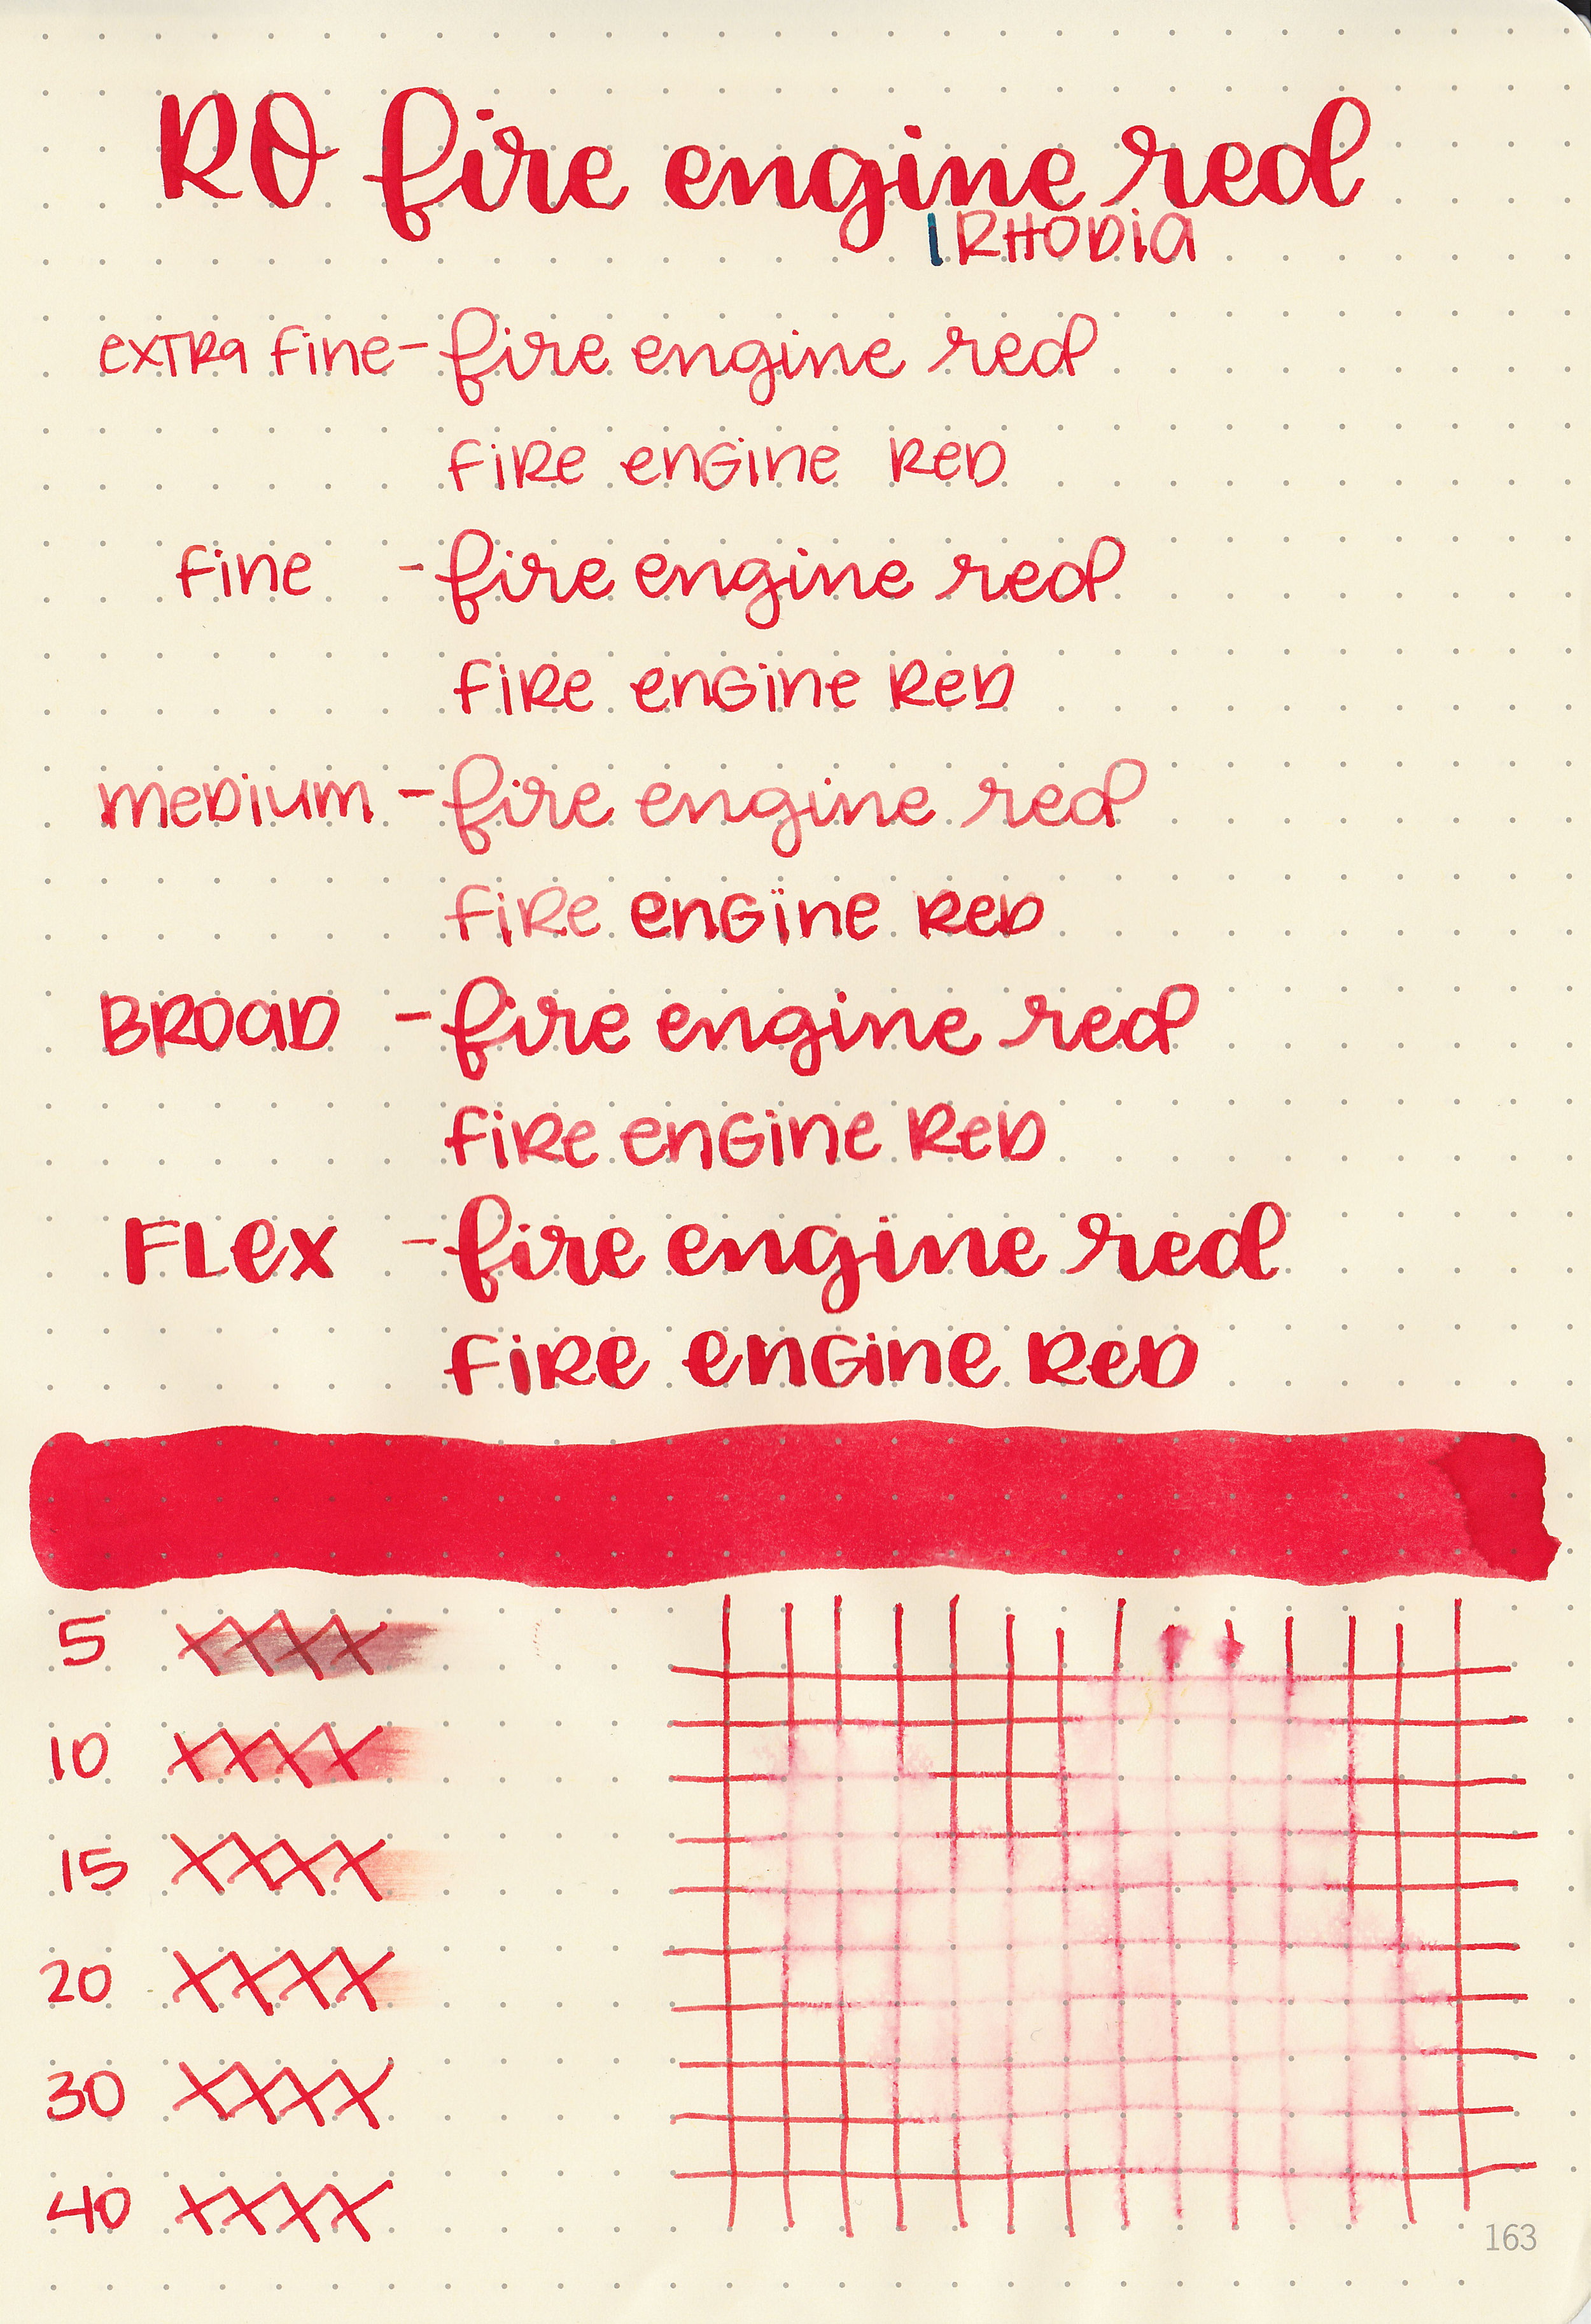 RO fire engine red
RHODIA
extra fine - fire engine red
fire engine red
fine - fire engine red
fire engine red
medium - fire engine red
fire engine red
BROAD - fire engine red
fire engine red
FLex - fire engine red
fire engine red
5 XXXX
10 XXXX
15 XXXX
20 XXXX
30 XXXX
40 XXXX
163